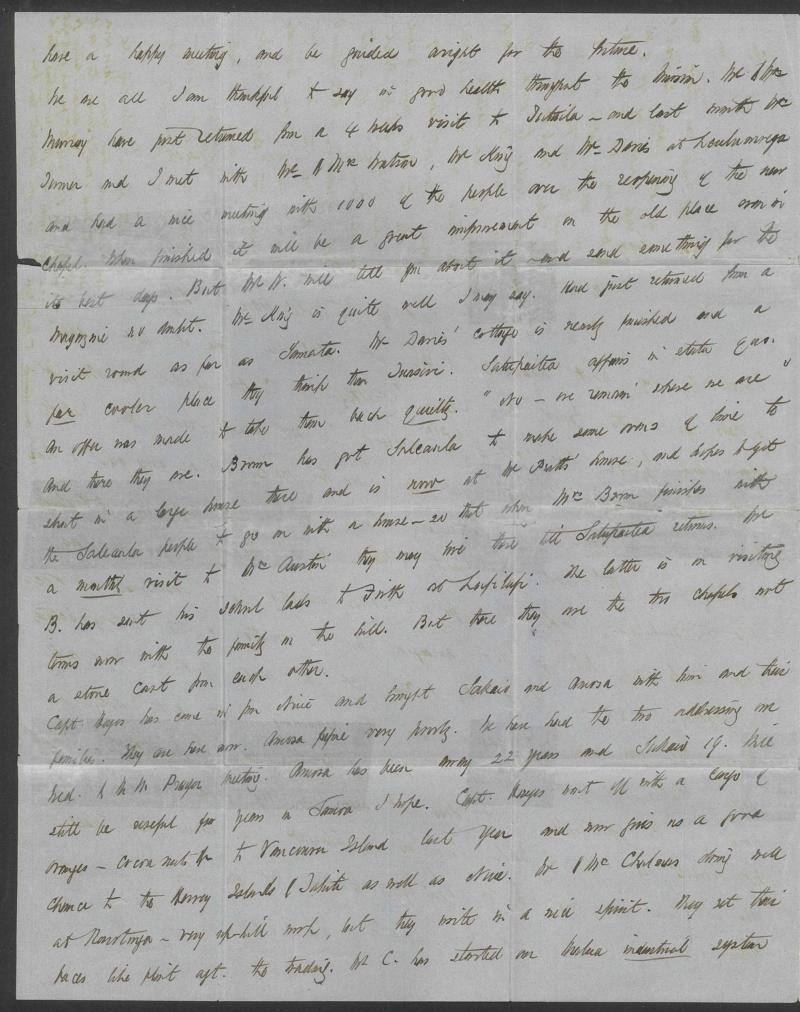 have a happy meeting, and be guided aright for the future.
We are all I am thankful to say in good health throughout the Mission. Mr & Mrs
Murray have just returned from a 4 weeks visit to Tutuila – and last month Mr
Turner and I met with Mr & Mrs Watson, Mr King and Mr Davies at Leulumoega
and had a nice meeting with 1000 of the people over the reopening of the new
chapel. When finished it will be a great improvement on the old place even in
its best days. But Mr W. will tell you about it – and send something for the
Magazine no doubt. Mr King is quite well I may say. Had just returned from a
visit round as far as Samata. Mr Davies' cottage is nearly finished and a
far cooler place they think than Tuasivi. Satupaitea affairs in statu quo.
An offer was made to take them back quietly. "No – we remain where we are"
And there they are. Brown has got Saleaula to make some of lime to
in a large house there and is now at Mr Pratt's house, and hopes to get
the Saleaula people to go on with a house – so that when Mrs Brown finishes with
a monthly visit to Mrs Austin they may live there till Satupaitea returns. Mr
B. has sent his school lads to at . The latter is on visiting
terms now with the family on the hill. But there they are the two chapels not
a stone cast from each other.
Capt. Hayes has come in from Niue and brought Sakaio and Amosa with him and their
families. They are here now. Amosa very poorly. We have had the two addressing our
Wed. & M. M. Prayer meeting. Amosa has been away 22 years and Sakaio 19. Will
still be useful for years in Samoa I hope. Capt. Hayes went off with a cargo of
oranges – cocoa nuts &c to Vancouver Island last year and now gives us a good
chance to the Hervey Islands & Tahiti as well as Niue. Mr & Mrs Chalmers doing well
at Rarotonga – very up-hill work, but they write in a nice spirit. They set their
faces like flint agt. the trading. Mr C. has started on Malua industrial system